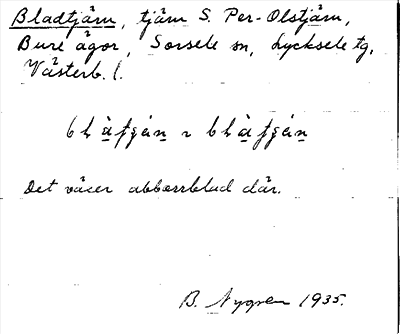 Bladtjärn, tjärn S. Per-Olstjärn,
Bure ägor, Sorsele sn, Lycksele tg,
Västerb. l.
Det växer abborrblad där.
B. Nygren 1935.